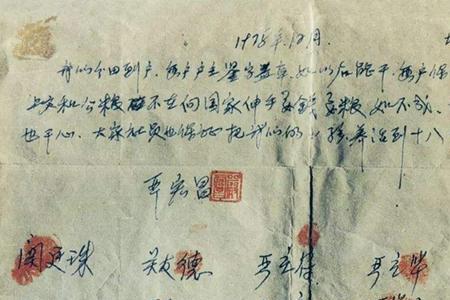 1978年12月.
我们分田到户,每户户主签字盖章,如以后能干,每户保
上交和公粮 不在向国家伸手要钱要粮 如不成,
也干心、大家社员也保证把我们的小孩养活到十八
严宏昌
关廷珠 关友德 严立符 严立华